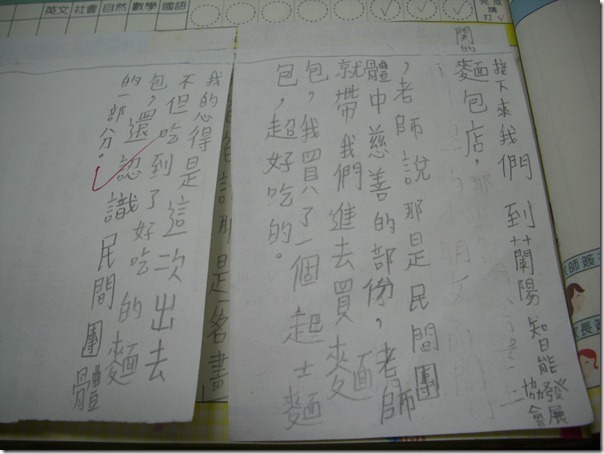 英文 社會 自然 數學 國語
完成請打✓
接下來我們到蘭陽智能發展協會
開的麵包店,
,老師說那是民間團
體中慈善的部份,老師
就帶我們進去買麵
包,我買了一個起士麵
包,超好吃的。
我的心得是這一次出去
不但吃到了好吃的麵
包,還認識民間團體
的一部分。
是名畫
師簽
長簽